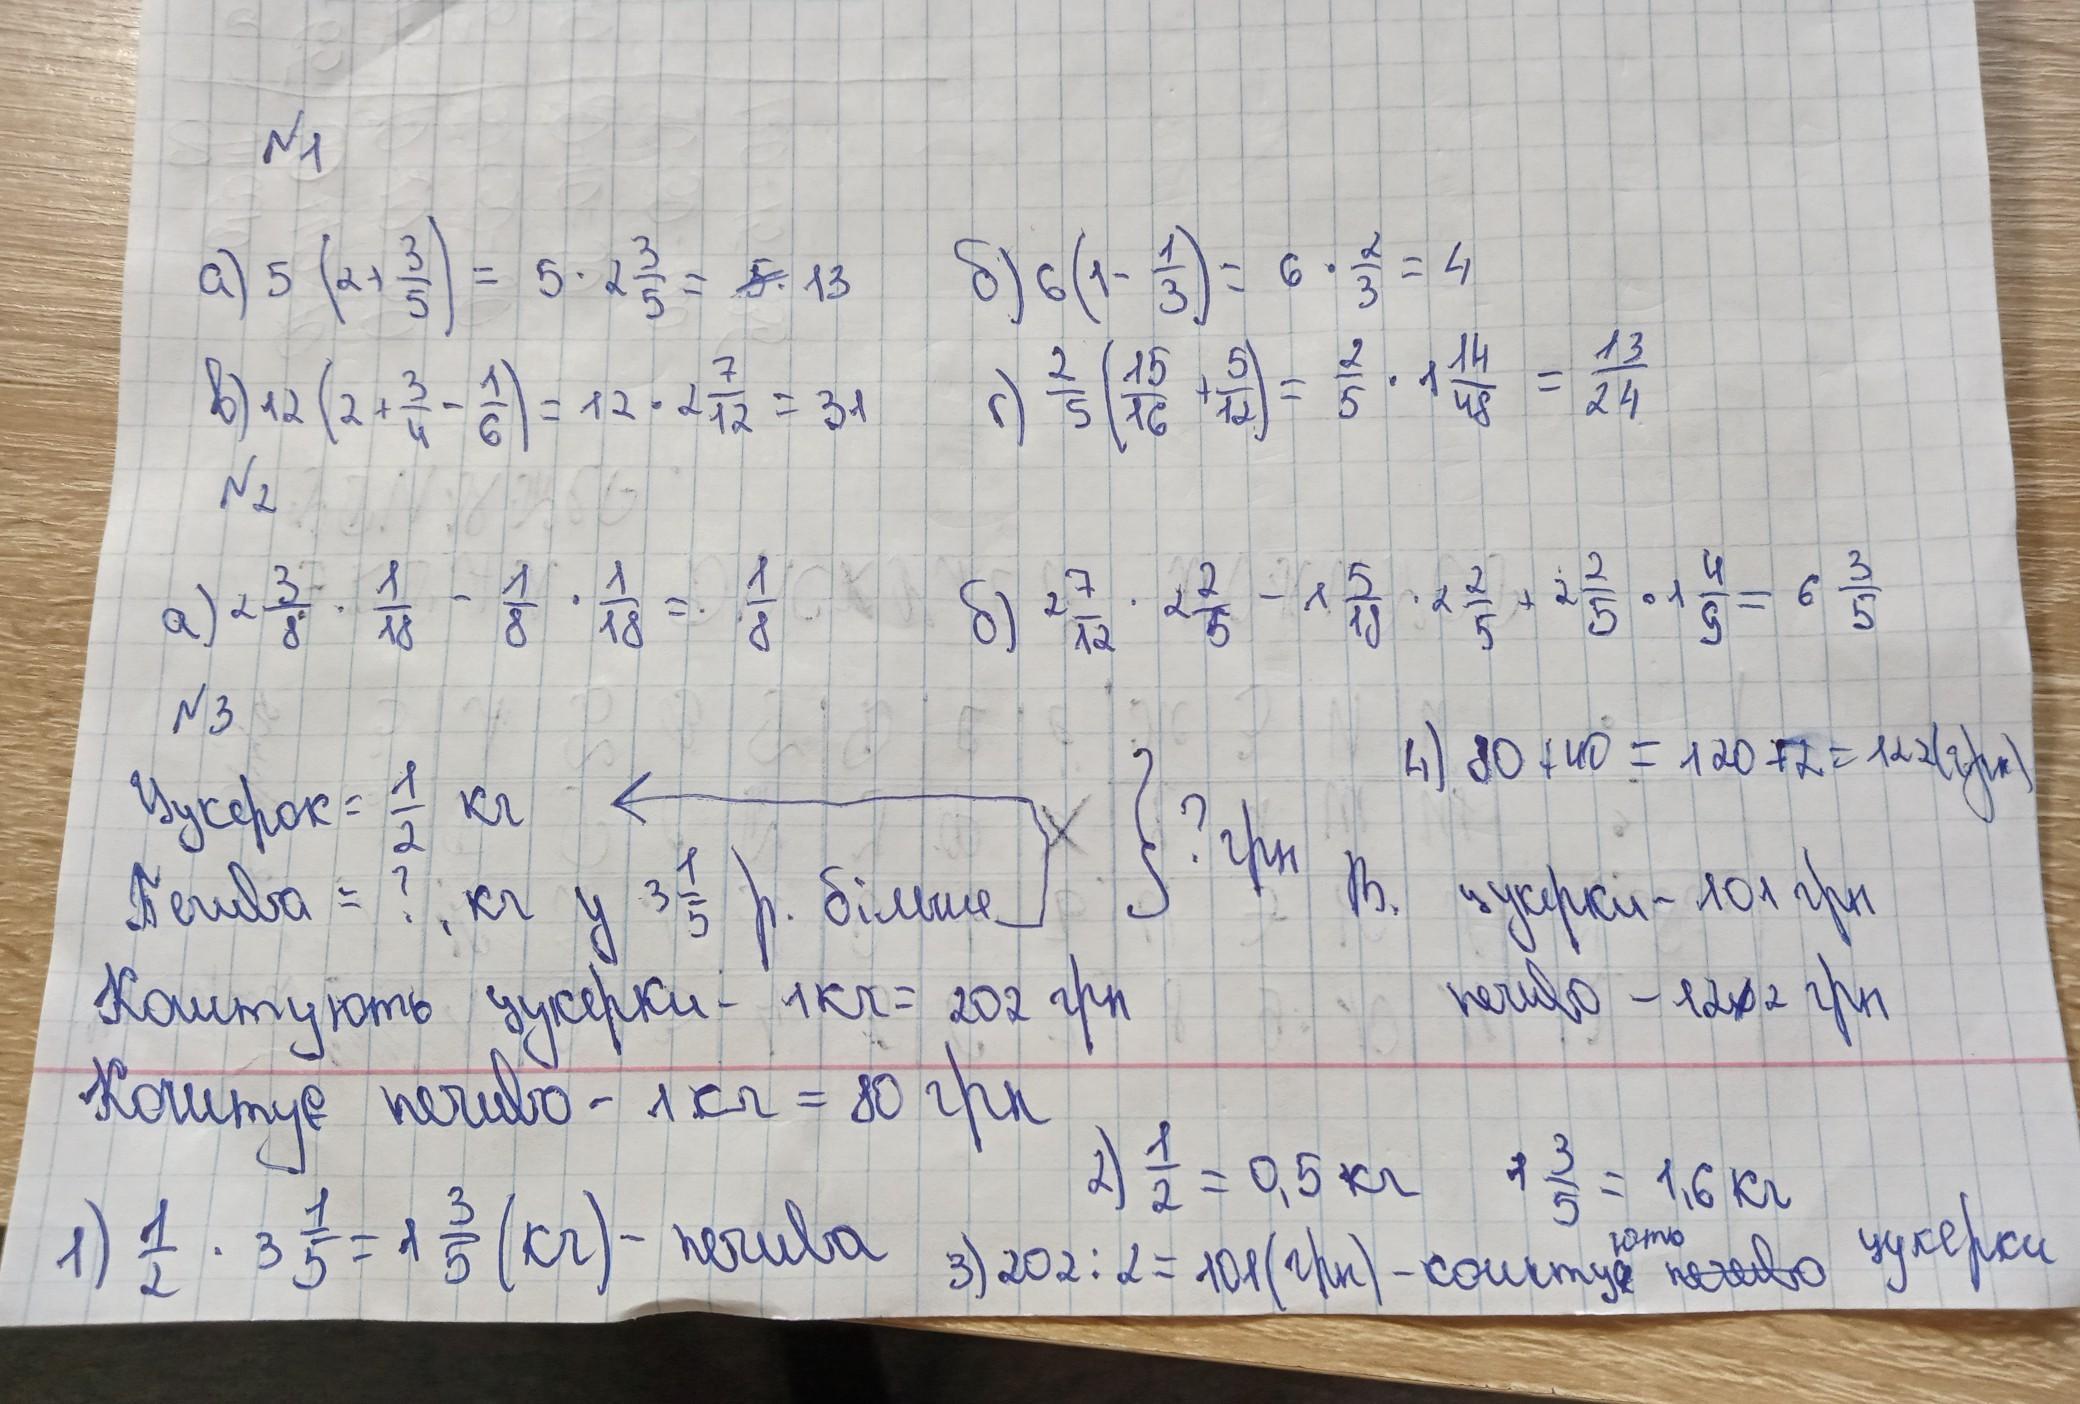 №1
а) 5 (2+3/5) = 5 · 2 3/5 = 13 б) 6(1 - 1/3) = 6 · 2/3 = 4
в) 12 (2+3/4 - 1/6) = 12 · 2 7/12 = 31 г) 2/5 (15/16 + 5/12) = 2/5 · 1 14/48 = 13/24
№2
а) 2 3/8 · 1/18 - 1/8 · 1/18 = 1/8 б) 2 7/12 · 2 2/5 - 1 5/18 · 2 2/5 + 2 2/5 · 1 4/9 = 6 3/5
№3
Цукерок = 1/2 кг
Печива = ?, кг у 3 1/5 р. більше } ? грн
Коштують цукерки - 1 кг = 202 грн
Коштує печиво - 1 кг = 80 грн
1) 1/2 · 3 1/5 = 1 3/5 (кг) - печива
2) 1/2 = 0,5 кг 1 3/5 = 1,6 кг
3) 202 : 2 = 101 (грн) - коштують печиво цукерки
4) 80 + 40 = 120 + 2 = 122 (грн)
В. цукерки - 101 грн
печиво - 122 грн